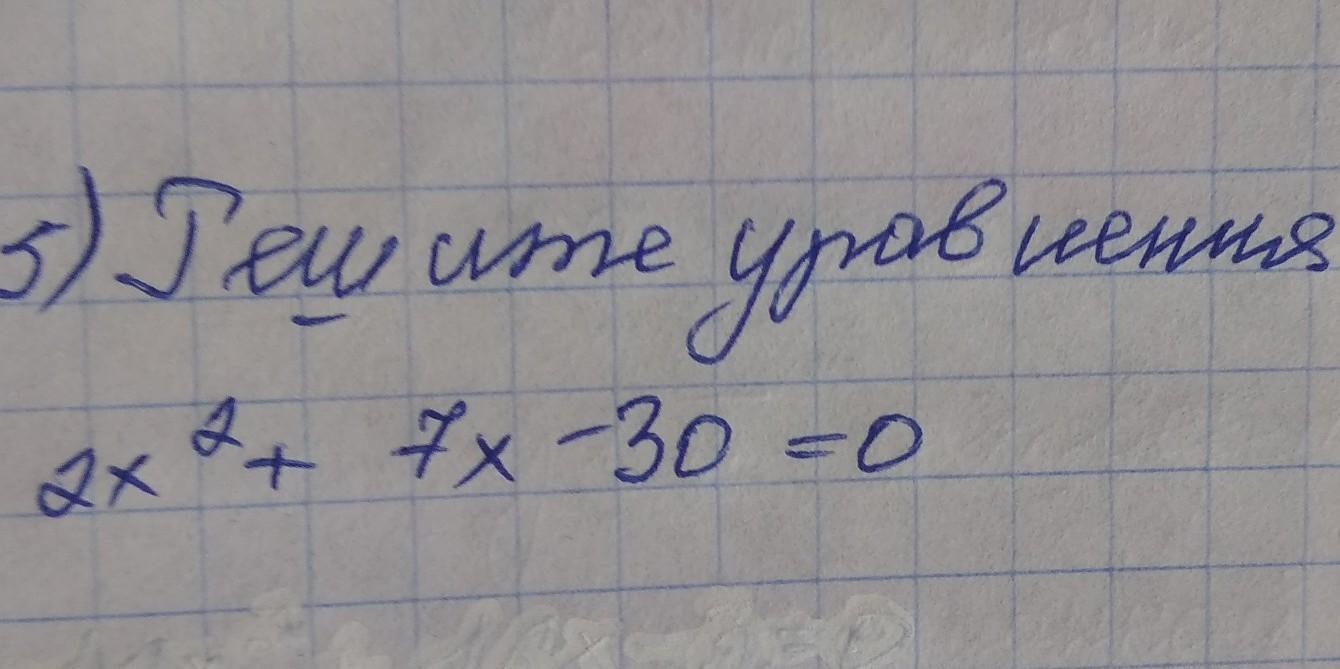 5) Решите уравнения
2x² + 7x - 30 = 0